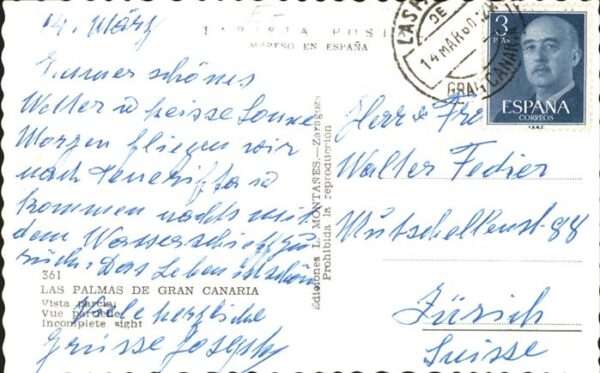 14. März
Immer schönes
Wetter u heisse Sonne
Morgen fliegen wir
nach Teneriffa u
kommen nachts mit
dem Wasserschiff zu
rück. Das Leben ist schön
Viele herzliche
Grüsse Joseph
TARJETA POSTAL
IMPRESO EN ESPAÑA
361
LAS PALMAS DE GRAN CANARIA
Vista parcial
Vue partielle
Incomplete sight
Ediciones L. MONTAÑES.—Zaragoza
Prohibida la reproducción
14 MAR 60
GRAN CANARIA
3
PTAS
ESPAÑA
CORREOS
Herr & Fr
Walter Fedier
Mutschellenst. 88
Zürich
Suisse